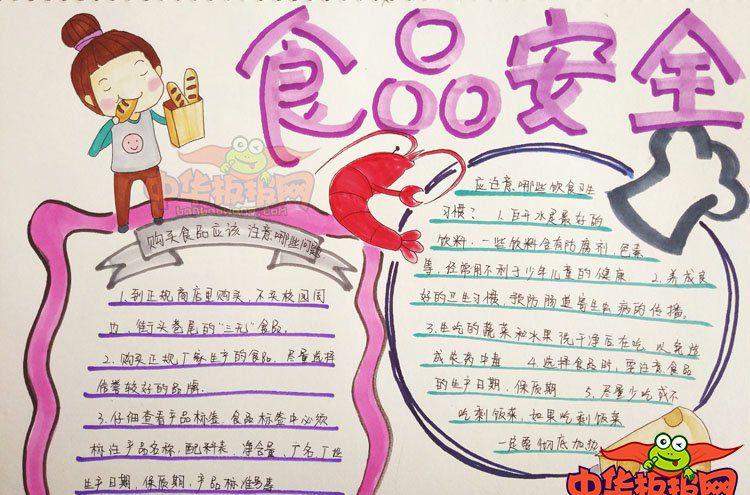 食品安全
中华板报网
购买食品应该注意哪些问题
1.到正规商店里购买，不买校园周
边、街头巷尾的“三无”食品。
2.购买正规厂家生产的食品，尽量选择
信誉较好的品牌。
3.仔细查看产品标签，食品标签中必须
标注产品名称、配料表、净含量、厂名、厂址
生产日期、保质期、产品标准号等
应注意哪些饮食卫生
习惯？ 1.白开水是最好的
饮料，一些饮料含有防腐剂、色素
等，经常用不利于少年儿童的健康 2.养成良
好的卫生习惯，预防肠道寄生虫病的传播。
3.生吃的蔬菜和水果洗干净后在吃，以免造
成农药中毒 4.选择食品时，要注意食品
的生产日期、保质期 5.尽量少吃或不
吃剩饭菜，如果吃剩饭菜
一定要彻底加热
中华板报网